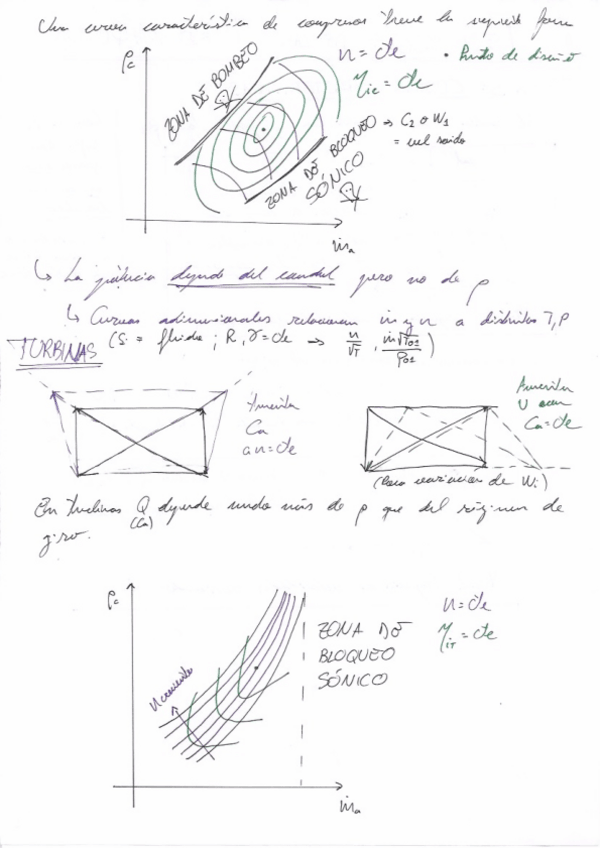 Una curva característica de compresor tiene la siguiente forma
ρc
ZONA DE BOMBEO
n = cte
• Punto de diseño
ηic = cte
ZONA DE BLOQUEO
SÓNICO
→ C2 o W1
= vel sonido
ṁa
↳ La potencia depende del caudal pero no de ρ
↳ Curvas adimensionales relacionan ṁ y n a distintos T, P
TURBINAS
(Si = fluido ; R, γ = cte → n/√T , ṁ√T01/P01)
Aumenta
Ca
a n = cte
Aumenta
U con
Ca = cte
(Para variación de Wi)
En turbinas Q depende mucho más de ρ que del régimen de
(Ca)
giro.
ρc
n = cte
ZONA DE
BLOQUEO
SÓNICO
ηiT = cte
n creciente
ṁa